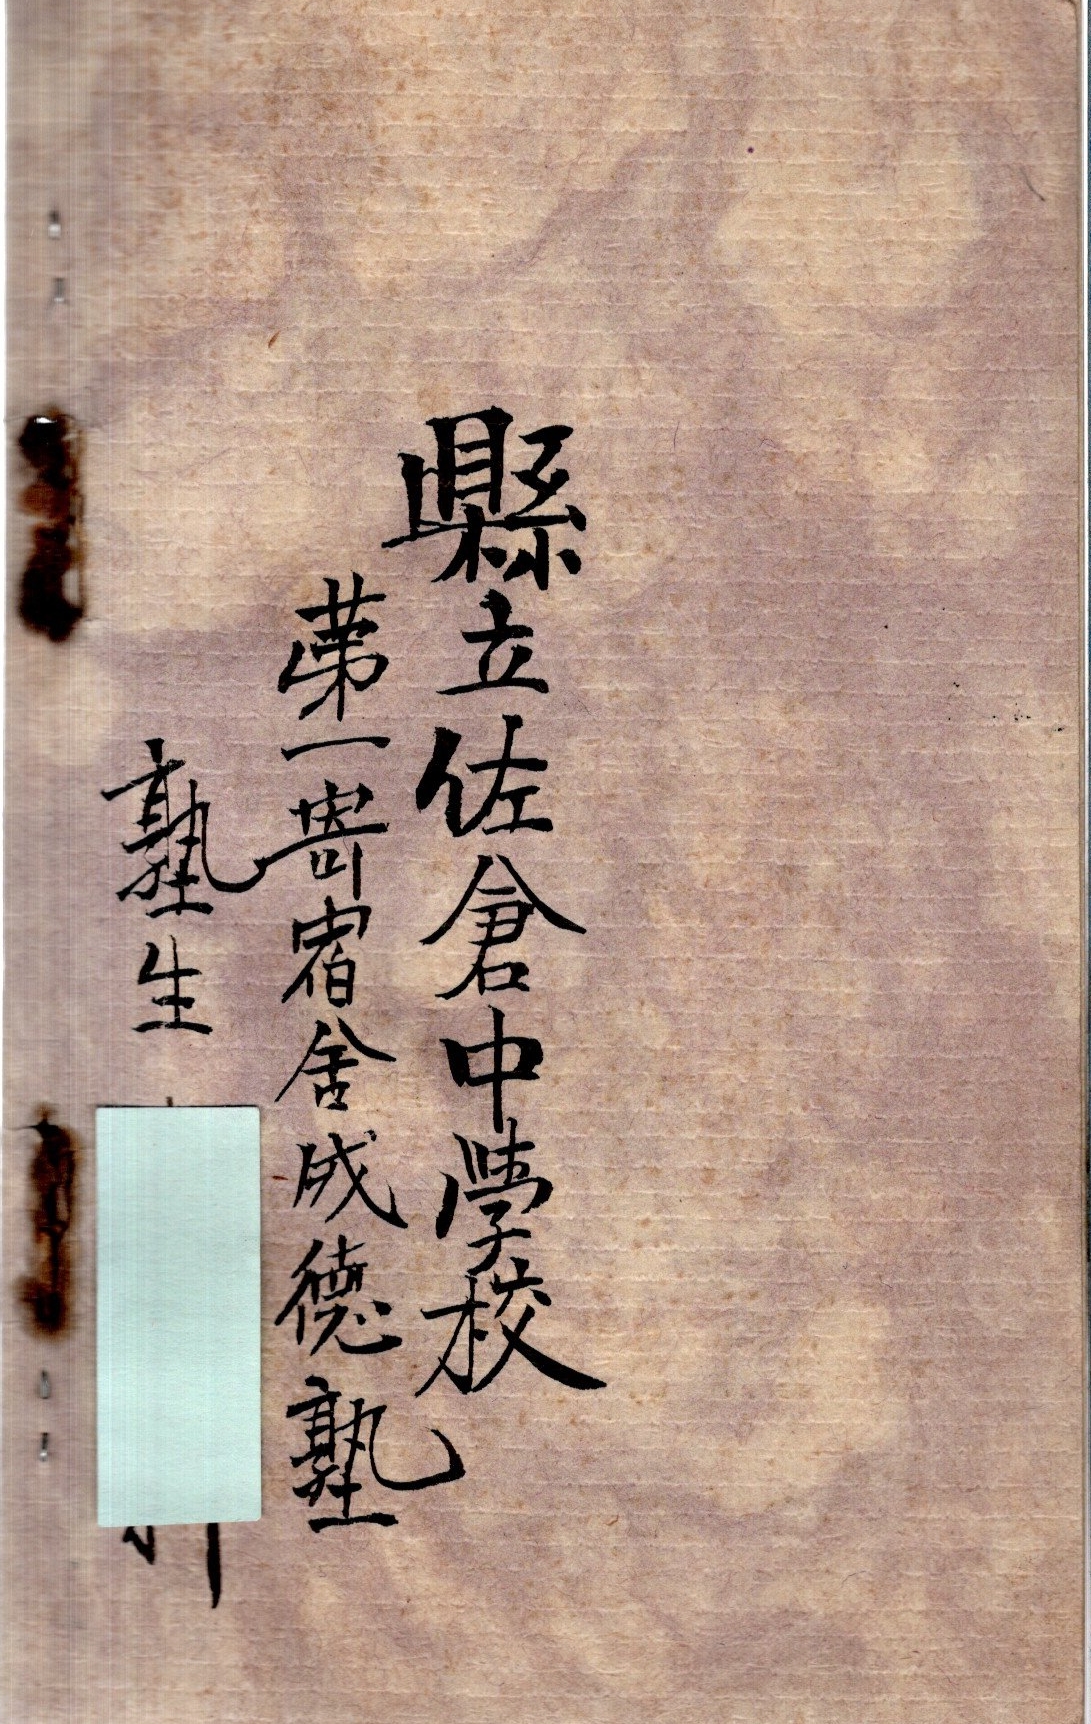 縣立佐倉中學校
第一寄宿舍成德塾
塾生